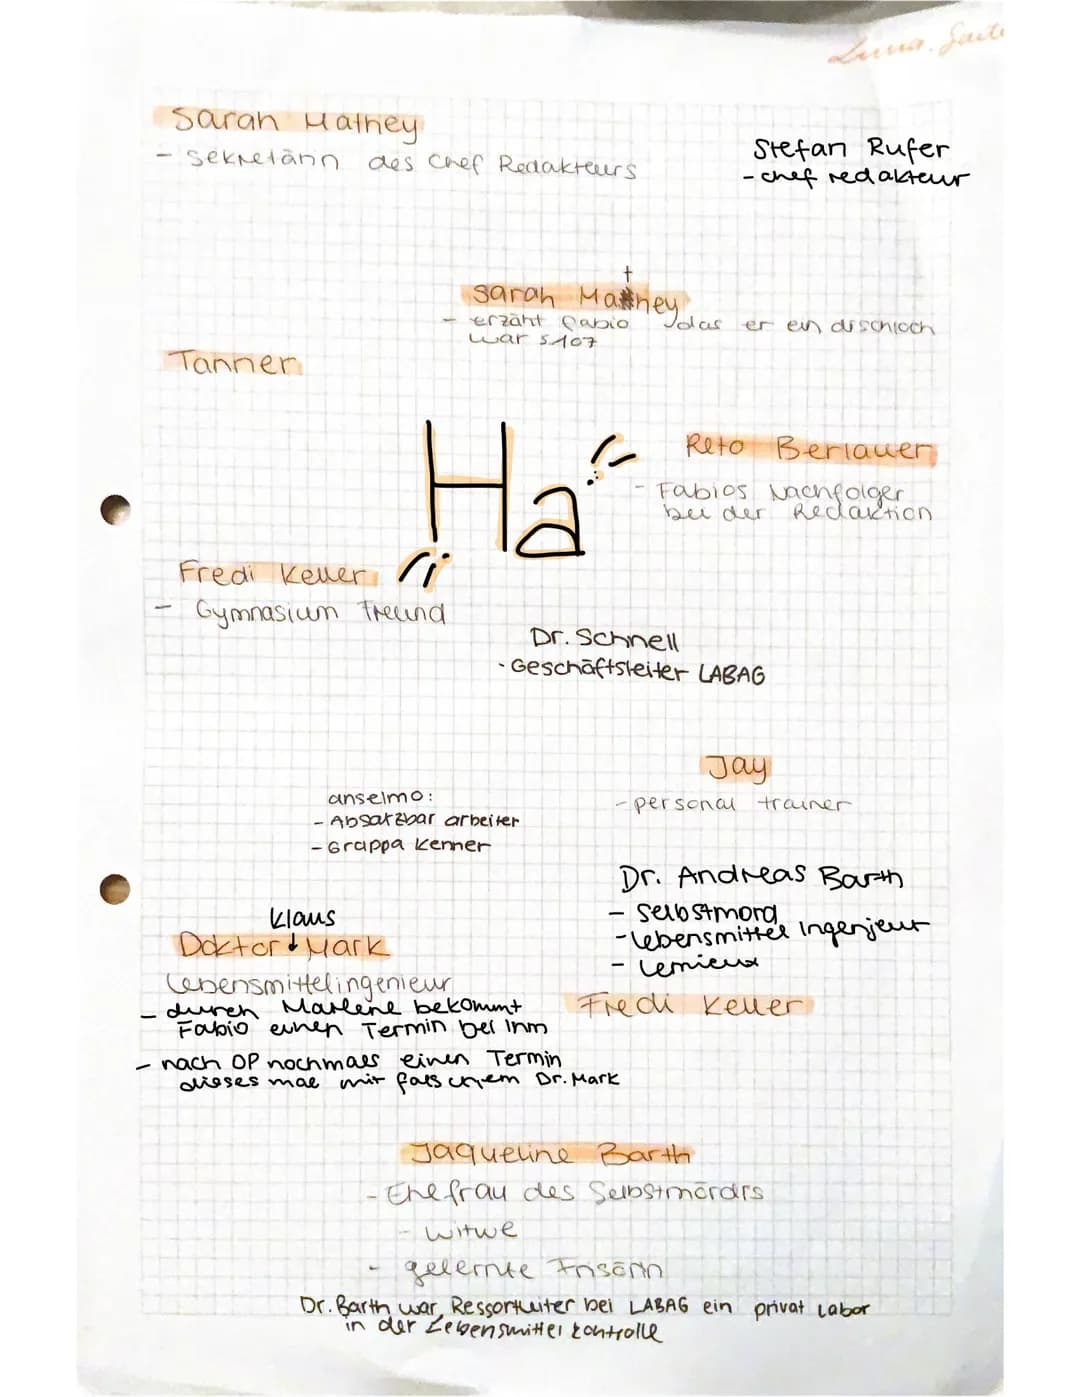 Luna.
Sarah Mathey
- Sekretärin des Chef Redakteurs
Stefan Rufer
- chef redakteur
†
Sarah Mathey
- erzäht Fabio das er ein dischloch
war S.107
Tanner
Ha
Reto Berlauer
- Fabios Nachfolger
bei der Redaktion
Fredi Keller
- Gymnasium Freund
Dr. Schnell
- Geschäftsleiter LABAG
Jay
- personal trainer
anselmo:
- Absatzbar arbeiter
- Grappa Kenner
Dr. Andreas Barth
- Selbstmord
- lebensmittel Ingenjeur
- Lemieux
Klaus
Doktor ↓ Mark
Lebensmittelingenieur
- durch Marlene bekommt
Fabio einen Termin bei Ihm
- nach OP nochmals einen Termin
dieses mal mit falschem Dr. Mark
Fredi Keller
Jaqueline Barth
- Ehefrau des Selbstmördrs
- Witwe
- gelernte Frisörin
Dr. Barth war Ressortleiter bei LABAG ein privat Labor
in der Lebensmittel kontrolle